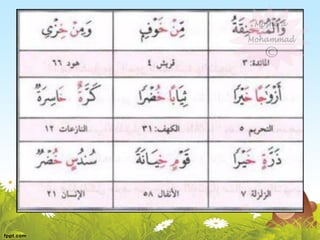 وَٱلْمُنْخَنِقَةُ مِّنْ خَوْفٍ وَمِنْ خِزْىِ
المائدة: ٣ قريش ٤ هود ٦٦
أَزْوَٰجًا خَيْرًا ثِيَابًا خُضْرًا كَرَّةٌ خَاسِرَةٌ
التحريم ٥ الكهف: ٣١ النازعات ١٢
ذَرَّةٍ خَيْرًا قَوْمٍ خِيَانَةً سُندُسٍ خُضْرٌ
الزلزلة ٧ الأنفال ٥٨ الإنسان ٢١
Mohammad
©
fppt.com